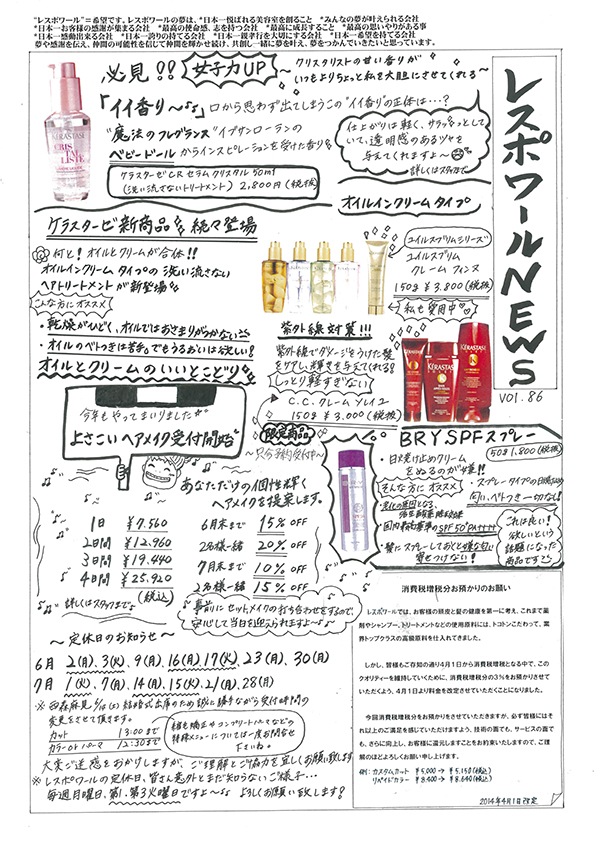 "レスポワール"=希望です。レスポワールの夢は、*日本一悦ばれる美容室を創ること　*みんなの夢が叶えられる会社
*日本一お客様の感謝が集まる会社　*最高の使命感、志を持つ会社　*最高に成長すること　*最高の思いやりがある事
*日本一感動出来る会社　*日本一誇りの持てる会社　*日本一親孝行を大切にする会社　*日本一希望を持てる会社
夢や感謝を伝え、仲間の可能性を信じて仲間を輝かせ続け、共創し一緒に夢を叶え、夢をつかんでいきたいと思っています。
レスポワールNEWS
vol.86
必見!! 女子力UP
クリスタリストの甘い香りが
いつもよりちょっと私を大胆にさせてくれる〜
「イイ香り〜♪」口から思わず出てしまうこの"イイ香り"の正体は…?
"魔法のフレグランス"イブサンローランの
ベビードールからインスピレーションを受けた香り
ケラスターゼCR セラム クリスタル 50ml
(洗い流さないトリートメント) 2,800円(税抜)
仕上がりは軽く、サラッとして
いて、透明感のあるツヤを
与えてくれますよ〜
詳しくはスタッフまで
KÉRASTASE
CRISTALLISTE
ケラスターゼ新商品 続々登場
オイルインクリームタイプ
何と!オイルとクリームが合体!!
オイルインクリームタイプの洗い流さない
ヘアトリートメントが新登場
こんな方にオススメ
・乾燥がひどく、オイルではおさまりがつかない
・オイルのベトつきは苦手。でもうるおいは欲しい!
オイルとクリームのいいとこどり
ユイルスブリムシリーズ
ユイルスブリム
クレーム フィンヌ
150g ¥3,800(税抜)
私も愛用中♡
紫外線対策!!!
紫外線でダメージをうけた髪
を守り、輝きを与えてくれる!
しっとり軽すぎない
C.C.クリーム ソレイユ
150g ¥3,000(税抜)
KERASTASE
今年もやってまいりました
よさこいヘアメイク受付開始
あなただけの個性輝く
ヘアメイクを提案します。
1日 ¥9,560
2日 ¥12,960
3日間 ¥19,440
4日間 ¥25,920
(税込)
詳しくはスタッフまで♪
6月末まで 15%OFF
2名様一緒 20%OFF
7月末まで 10%OFF
2名様一緒 15%OFF
事前にセットメイクの打ち合わせをするので、
安心して当日を迎えられますよ〜♪
限定商品
〜只今予約受付中〜
BRY SPFスプレー
50g 1,800(税抜)
・日焼け止めクリーム
をぬるのが嫌!!
そんな方にオススメ
・スプレータイプの日焼け止め
匂い、ベトつき一切なし!
・国内最高基準のSPF50 PA++++
・髪にスプレーしておくと嫌な匂い
を寄せつけない!
これは良い!
欲しいという
話題になった
商品ですっ
〜定休日のお知らせ〜
6月 2(月)、3(火)、9(月)、16(月)、17(火)、23(月)、30(月)
7月 1(火)、7(月)、14(月)、15(火)、21(月)、28(月)
変更をさせて頂きます。
カット 13:00まで
カラーorパーマ 12:30まで
縮毛矯正やコンプリートパーマなどの
特殊メニューについては一度お問合せ
下さいね。
大変ご迷惑をおかけしますが、ご理解とご協力を宜しくお願い致します
※レスポワールの定休日、皆さん意外とまだ知らないご様子…
毎週月曜日、第1、第3火曜日ですよ〜♪ よろしくお願い致します!
消費税増税分お預かりのお願い
レスポワールでは、お客様の頭皮と髪の健康を第一に考え、これまで薬
剤やシャンプー、トリートメントなどの使用原料には、トコトンこだわって、業
界トップクラスの高級原料を仕入れてきました。
しかし、皆様もご存知の通り4月1日から消費税増税となる中で、この
クオリティーを維持していくために、消費税増税分の3%をお預かりさせて
いただくよう、4月1日より料金を改定させていただくことになりました。
今回消費税増税分をお預かりをさせていただきますが、必ず皆様にはそ
れ以上のご満足を感じていただけますよう、技術の面でも、サービスの面で
も、さらに向上し、お客様に還元しますことをお約束いたしますので、ご理
解のほどよろしくお願い申し上げます。
例:カスタムカット ¥5,000→¥5,150(税込)
リペイドカラー ¥8,400→¥8,640(税込)
2014年4月1日改定